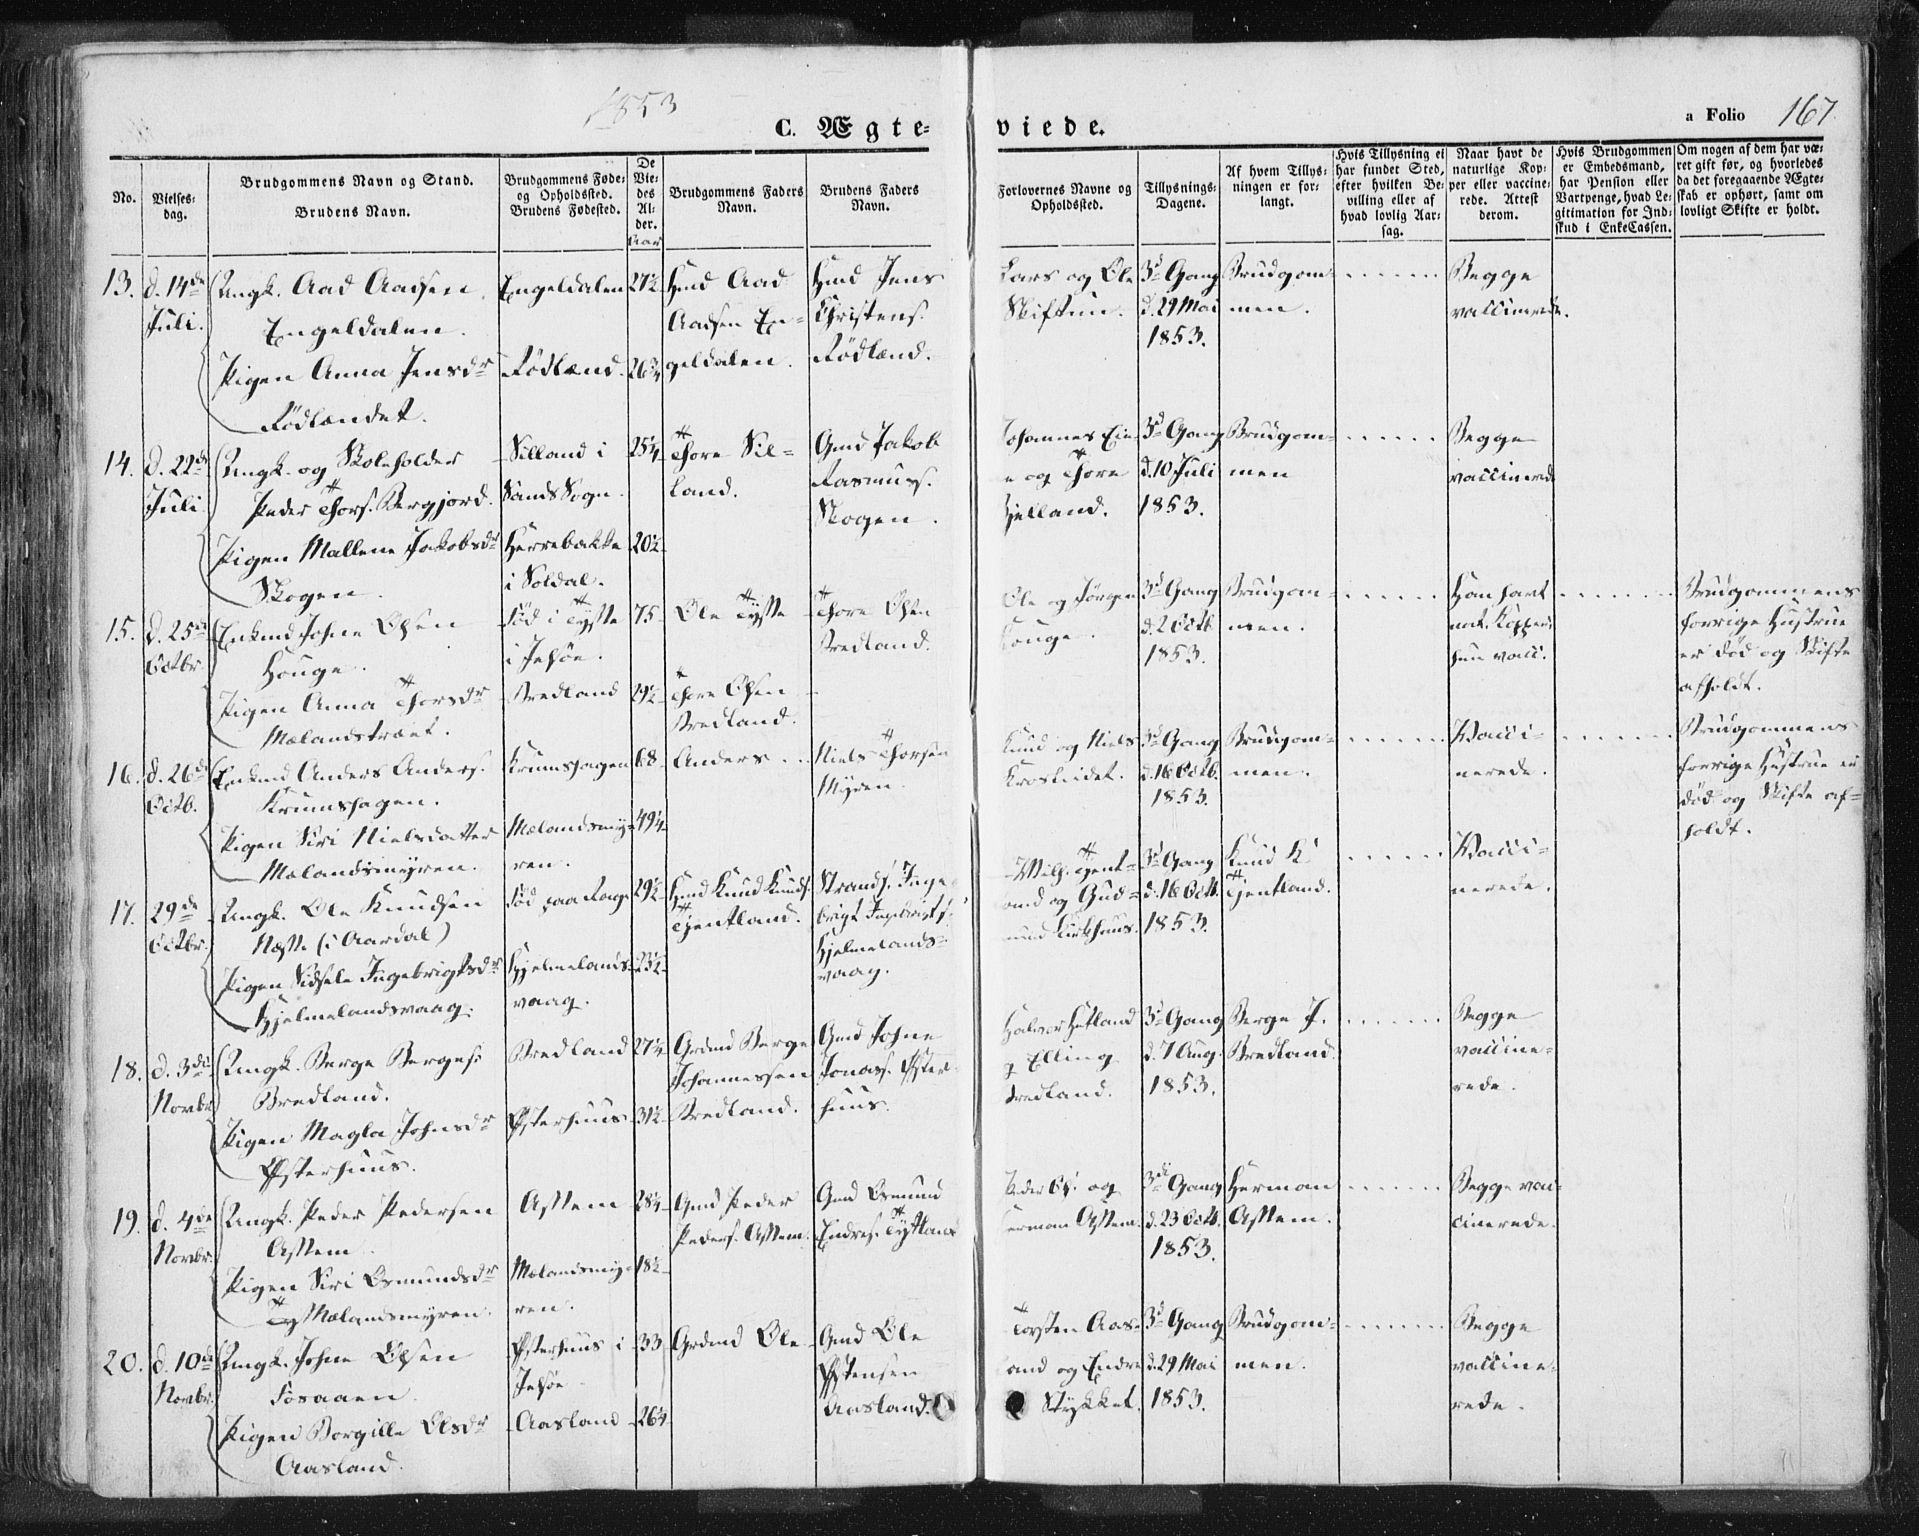 1853
C. Ægte-
viede.
a Folio 167
No.
Vielses-
dag.
Brudgommens Navn og Stand.
Brudens Navn.
Brudgommens Føde-
og Opholdssted.
Brudens Fødested.
De
Vie-
des
Al-
der.
Aar
Brudgommens Faders
Navn.
Brudens Faders
Navn.
Forlovernes Navne og
Opholdssted.
Tillysnings-
Dagene.
Af hvem Tillys-
ningen er for-
langt.
Hvis Tillysning ei
har fundet Sted,
efter hvilken Be-
villing eller af
hvad lovlig Aar-
sag.
Naar havt de
naturlige Kop-
per eller vaccine-
rede. Attest
derom.
Hvis Brudgommen
er Embedsmand,
har Pension eller
Vartpenge, hvad Le-
gitimation for Ind-
skud i EnkeCassen.
Om nogen af dem har væ-
ret gift før, og hvorledes
da det foregaaende Ægte-
skab er ophørt, samt om
lovligt Skifte er holdt.
13.
d. 14de
Juli.
Ungk. Aad Aadsen
Engeldalen.
Pigen Anna Jensdr
Fødlændet.
Engeldalen
Fødlænd.
27½
26¾
Hmd Aad
Aadsen En-
geldalen.
Hmd Jens
Christens.
Fødlænd.
Lars og Ole
Skiftun.
3d Gang
d. 29 Mai
1853.
Brudgom-
men.
Begge
vaccinerede.
14.
d. 22de
Juli
Ungk. og Skoleholder
Peder Thors. Bergjord.
Pigen Mallene Jakobsdr
Skogen.
Silland i
Sands Sogn.
Herrebakke
i Soldal.
25¼
20½
Thore Sil-
land.
Gmd Jakob
Rasmus.
Skogen.
Johannes Eie-
e og Thore
Hjelland.
3d Gang
d. 10 Juli
1853.
Brudgom-
men
Begge
vaccinerede
15.
d. 25de
Octbr.
Enkmd Johne Olsen
Houge.
Pigen Anna Thorsdr
Mælandstræet.
Fød i Tysse
i Jelsøe.
Bredland
75
29½
Ole Tysse
Thore Olsen
Bredland.
Thore Olsen
Bredland.
Ole og Jørgen
Houge.
3d Gang
d. 2 Octb.
1853.
Brudgom-
men.
Han havt
nat. Kopper,
hun vacc.
Brudgommens
forrige Hustrue
er død og Skifte
afholdt.
16.
d. 26de
Octb.
Enkmd Anders Anders.
Krumshagen.
Pigen Siri Nielsdatter
Mælandsmyren.
Krumshagen
Mælandsmy-
ren.
68
49¼
Anders
Niels Thorsen
Myren.
Knud og Niels
Krosleidet.
3d Gang
d. 16 Octb.
1853.
Brudgom-
men.
Vacci-
nerede.
Brudgommens
forrige Hustrue er
død og Skifte af-
holdt.
17.
29de
Octbr.
Ungk. Ole Knudsen
Næsse (i Aardal)
Pigen Sidsele Ingebrigtsdr
Hjelmelandsvaag.
Fød paa
Hjelmelands-
vaag.
29½
23½
Hmd Knud Knuds.
Tjentland.
Strands. Inge-
brigt Ingebrigts.
Hjelmelands-
vaag.
Milh. Tjent-
land og Gud-
mund Kirkhuus.
3d Gang
d. 16 Octb.
1853.
Knud K.
Tjentland.
Vacci-
nerede.
18.
d. 3die
Novbr.
Ungk. Berge Berges.
Bredland.
Pigen Magla Johnsdr
Østerhuus.
Bredland
Østerhuus
27¼
31½
Grdmd Berge
Johannessen
Bredland.
Gmd Johne
Jonas. Øster-
huus.
Halvor Hetland
og Elling
Bredland.
3d Gang
d. 7 Aug.
1853.
Berge J.
Bredland.
Begge
vaccine-
rede.
19.
d. 4de
Novbr.
Ungk. Peder Pedersen
Assem
Pigen Siri Osmundsdr
Mælandsmyren.
Assem
Mælandsmy-
ren.
28¼
18½
Gmd Peder
Peders. Assem.
Gmd Osmund
Endres. Tytland
Peder Ø. og
Herman Assem.
3di Gang
d. 23 Octb.
1853.
Herman
Assem.
Begge vac-
cinerede.
20.
d. 10de
Novbr.
Ungk. Johne Olsen
Fosaaen
Pigen Borgille Olsdr
Aasland.
Østerhuus i
Jelsøe
Aasland
33
26¼
Grdmd Ole
Gmd Ole
Østensen
Aasland.
Torsten Aas-
land og Endre
Stykket.
3d Gang
d. 29 Mai
1853.
Brudgom-
men.
Begge
vaccine-
rede.